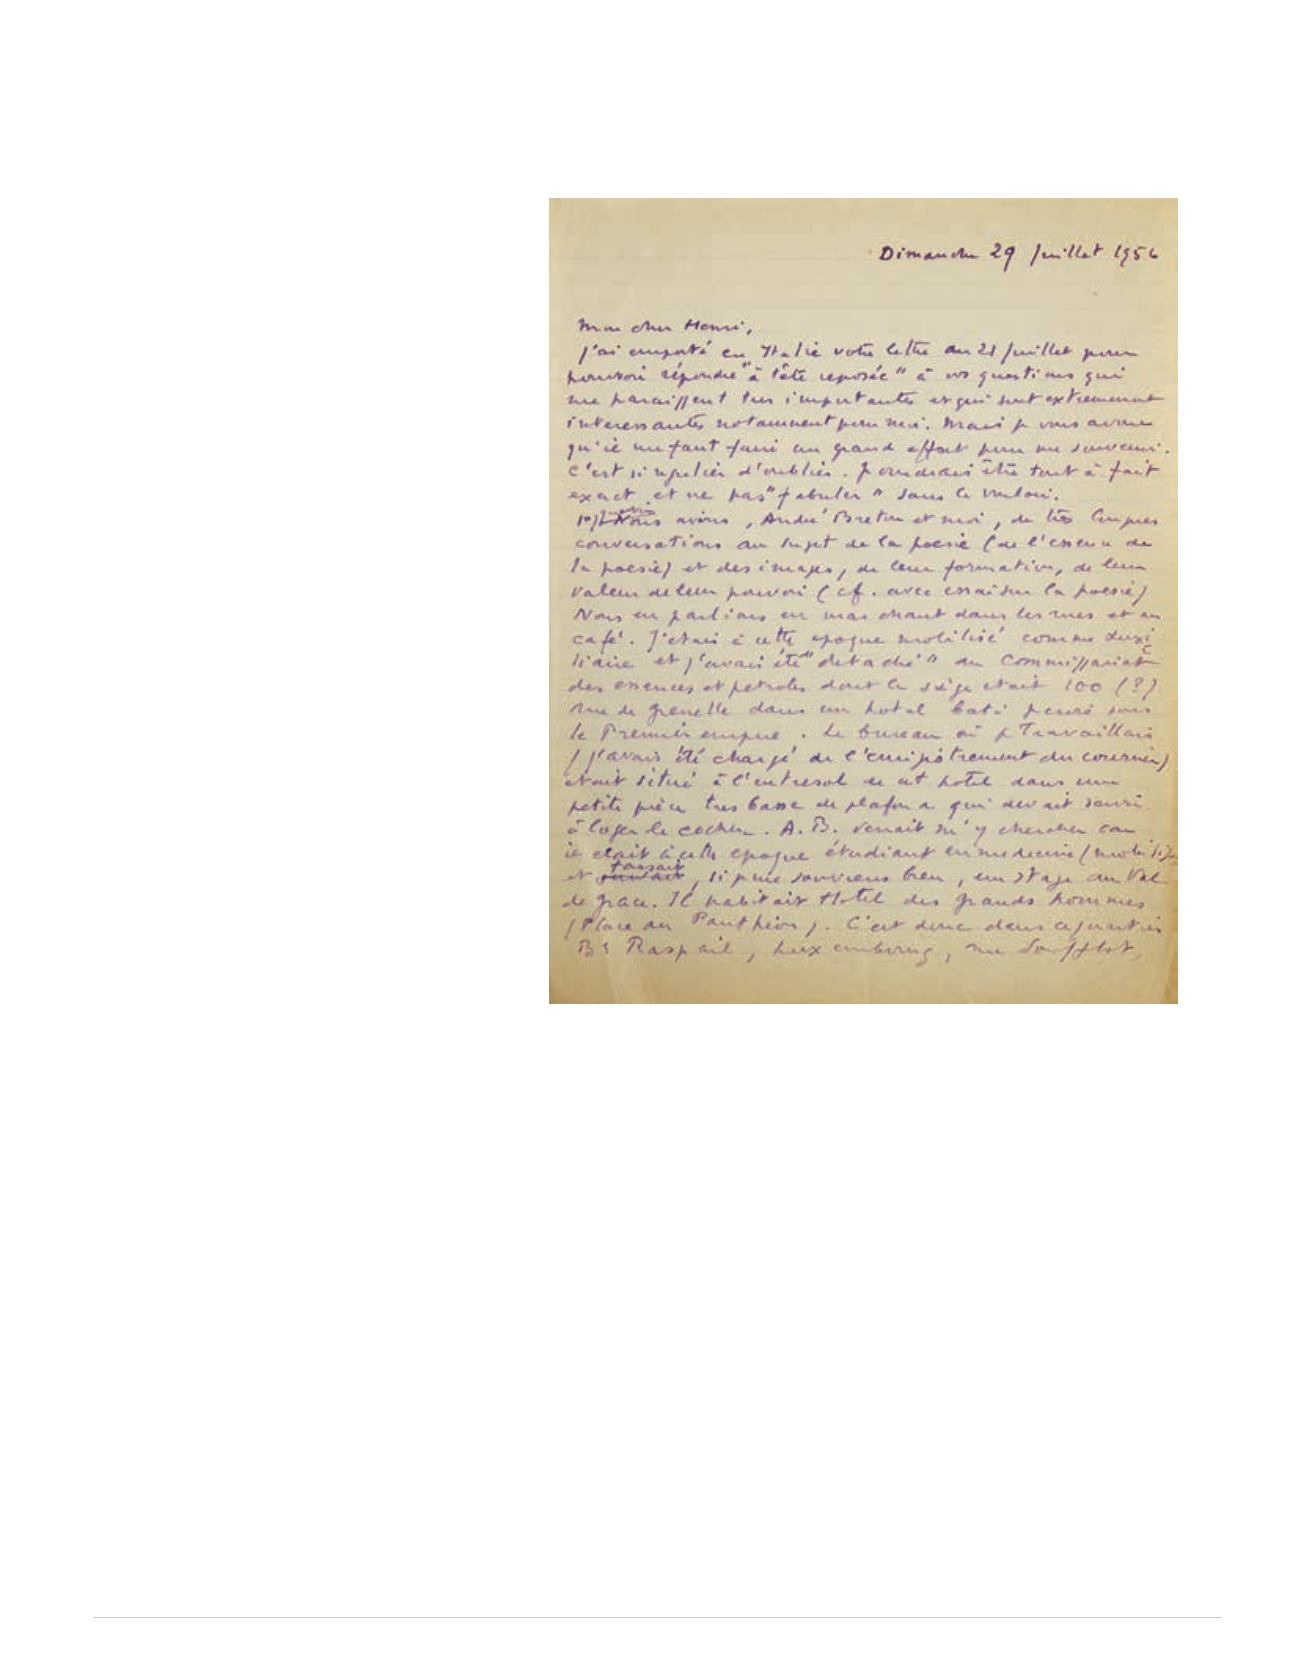 Dimanche 29 Juillet 1956
Mon cher Henri,
J'ai emporté en Italie votre lettre du 21 Juillet pour
pouvoir répondre "à tête reposée" à vos questions qui
me paraissent très importantes et qui sont extremement
interessantes notamment pour moi. Mais je vous avoue
qu'il me faut faire un grand effort pour me souvenir.
C'est si régulier d'oublier. Je voudrais être tout à fait
exact et ne pas "fabuler" sans le vouloir.
1°) Nous avions, André Breton et moi, de très longues
conversations au sujet de la poesie (de l'essence de
la poesie) et des images, de leur formation, de leur
valeur de leur pouvoir (cf. avec essai sur la poesie)
Nous en parlions en marchant dans les rues et au
café. J'étais à cette epoque mobilisé comme auxi
liaire et j'avais été "detaché" au Commissariat
des essences et petroles dont le siège etait 100 (?)
rue de grenelle dans un hotel bati sous
le Premier empire. Le bureau où je Travaillais
(j'avais été chargé de l'enregistrement du courrier)
etait situé à l'entresol de cet hotel dans une
petite pièce très basse de plafond qui devait servir
à loger le cocher. A. B. venait m'y chercher car
il etait à cette epoque étudiant en medecine (mobilisé)
et faisait, si je me souviens bien, un stage au Val
de grace. Il habitait Hotel des grands hommes
(Place du Panthéon). C'est donc dans ce quartier
Bd Raspail, Luxembourg, rue Soufflot,